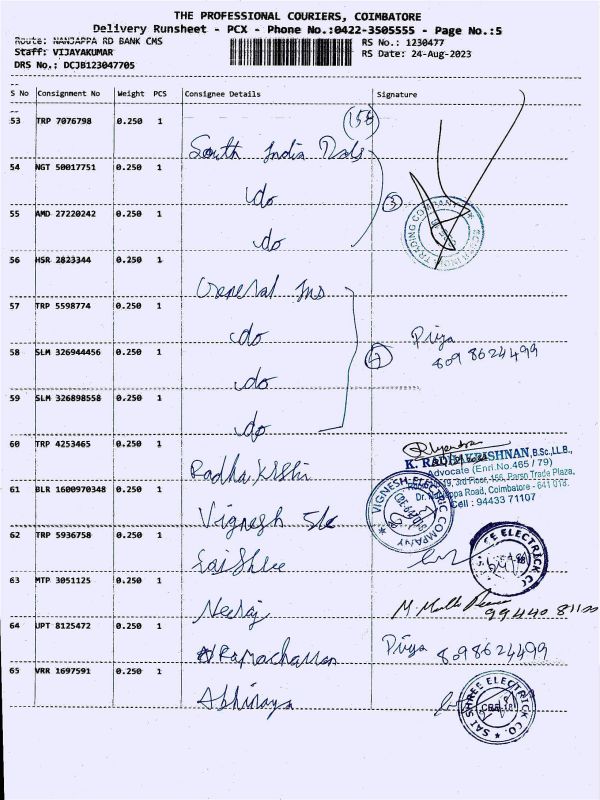 THE PROFESSIONAL COURIERS, COIMBATORE
Delivery Runsheet - PCX - Phone No.:0422-3505555 - Page No.:5
Route: NANJAPPA RD BANK CMS
RS No.: 1230477
Staff: VIJAYAKUMAR
RS Date: 24-Aug-2023
DRS No,: DCJB123047705
S No Consignment No Weight PCS Consignee Details Signature
53 TRP 7076798 0.250 1
South India
54 NGT 50017751 0.250 1
do
55 AMD 27220242 0.250 1
do
TRADING COMPANY
56 HSR 2823344 0.250 1
General Ins
57 TRP 5598774 0.250 1
do
Priya
8098624499
58 SLM 326944456 0.250 1
do
59 SLM 326898558 0.250 1
do
60 TRP 4253465 0.250 1
Radha Krishi
K. RADHAKRISHNAN, B.Sc.,LL.B.,
Advocate (Enrl.No.465 / 79)
3rd Floor, 156, Parso Trade Plaza,
Dr. Nanjappa Road, Coimbatore - 641 018.
Cell : 94433 71107
61 BLR 1600970348 0.250 1
Vignesh
VIGNESH ELECTRIC COMPANY
62 TRP 5936758 0.250 1
Sai Shree
63 MTP 3051125 0.250 1
Neeraj
99440 81100
64 UPT 8125472 0.250 1
Ramachandran
Priya 8098624499
65 VRR 1697591 0.250 1
Abhinaya
SAI SHREE ELECTRICK CO.
CBE-18